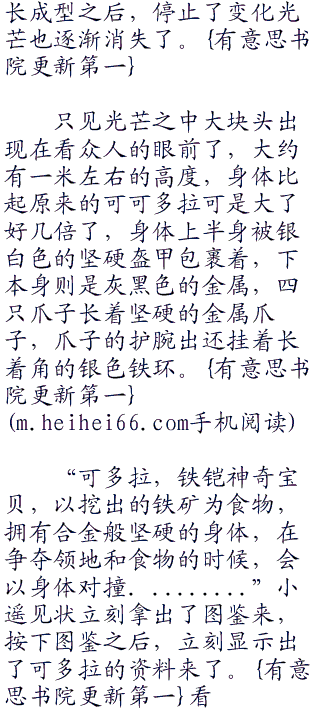 长成型之后，停止了变化光
芒也逐渐消失了。{有意思书
院更新第一}
只见光芒之中大块头出
现在看众人的眼前了，大约
有一米左右的高度，身体比
起原来的可可多拉可是大了
好几倍了，身体上半身被银
白色的坚硬盔甲包裹着，下
本身则是灰黑色的金属，四
只爪子长着坚硬的金属爪
子，爪子的护腕出还挂着长
着角的银色铁环。{有意思书
院更新第一}
(m.heihei66.com手机阅读)
“可多拉，铁铠神奇宝
贝，以挖出的铁矿为食物，
拥有合金般坚硬的身体，在
争夺领地和食物的时候，会
以身体对撞．........”小
遥见状立刻拿出了图鉴来，
按下图鉴之后，立刻显示出
了可多拉的资料来了。{有意
思书院更新第一}看